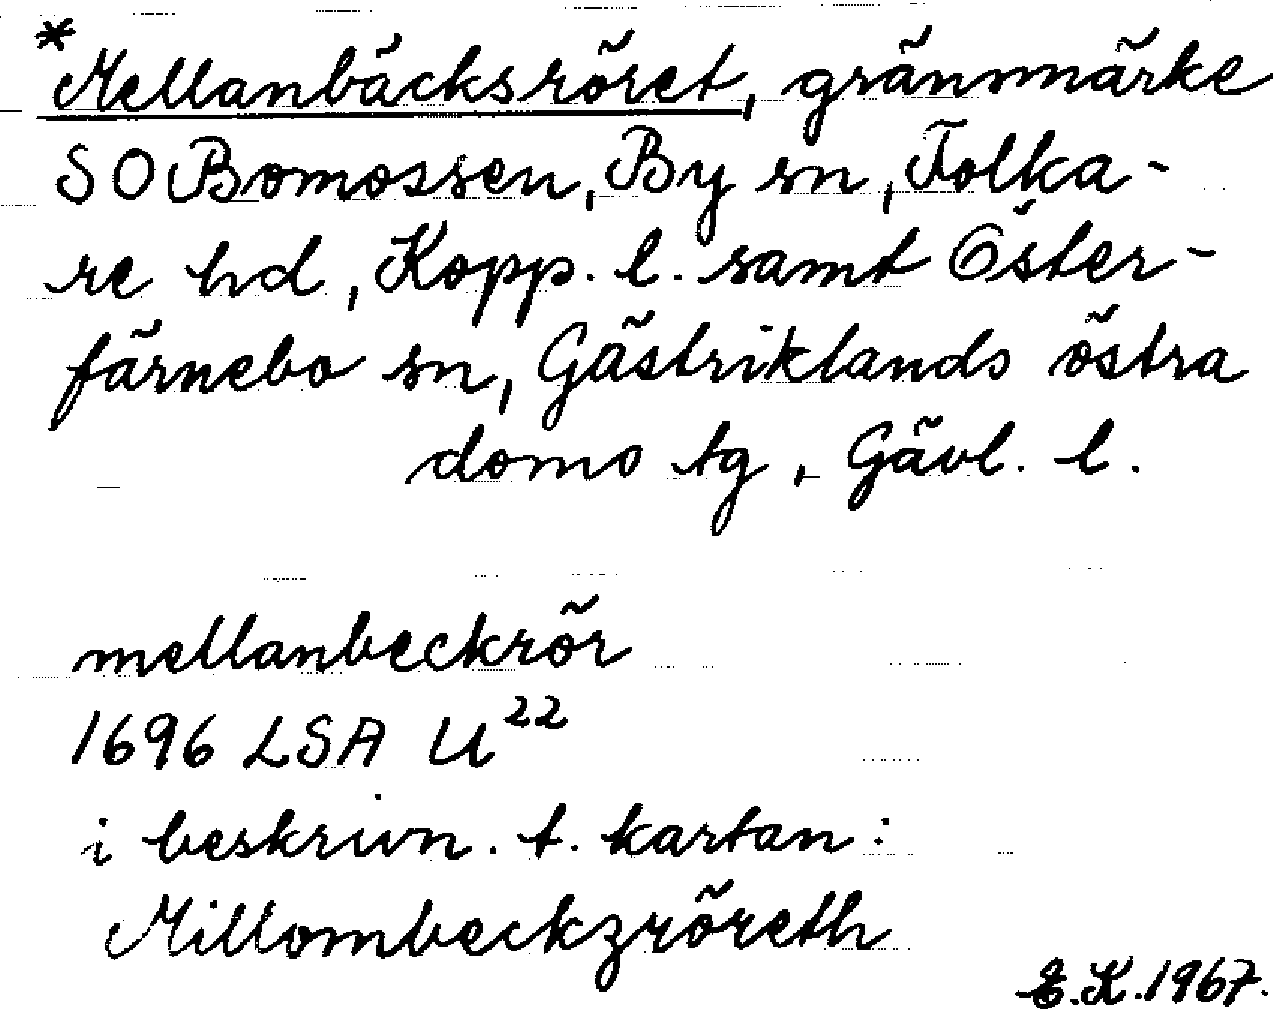 *Mellanbäcksröret, gränmärke
SO Bomossen, By sn, Folka-
re hd, Kopp. l. samt Öster-
färnebo sn, Gästriklands östra
domo tg, Gävl. l.
mellanbeckrör
1696 LSA U²²
i beskrivn. t. kartan:
Millombeckzröreth
E.K.1967.